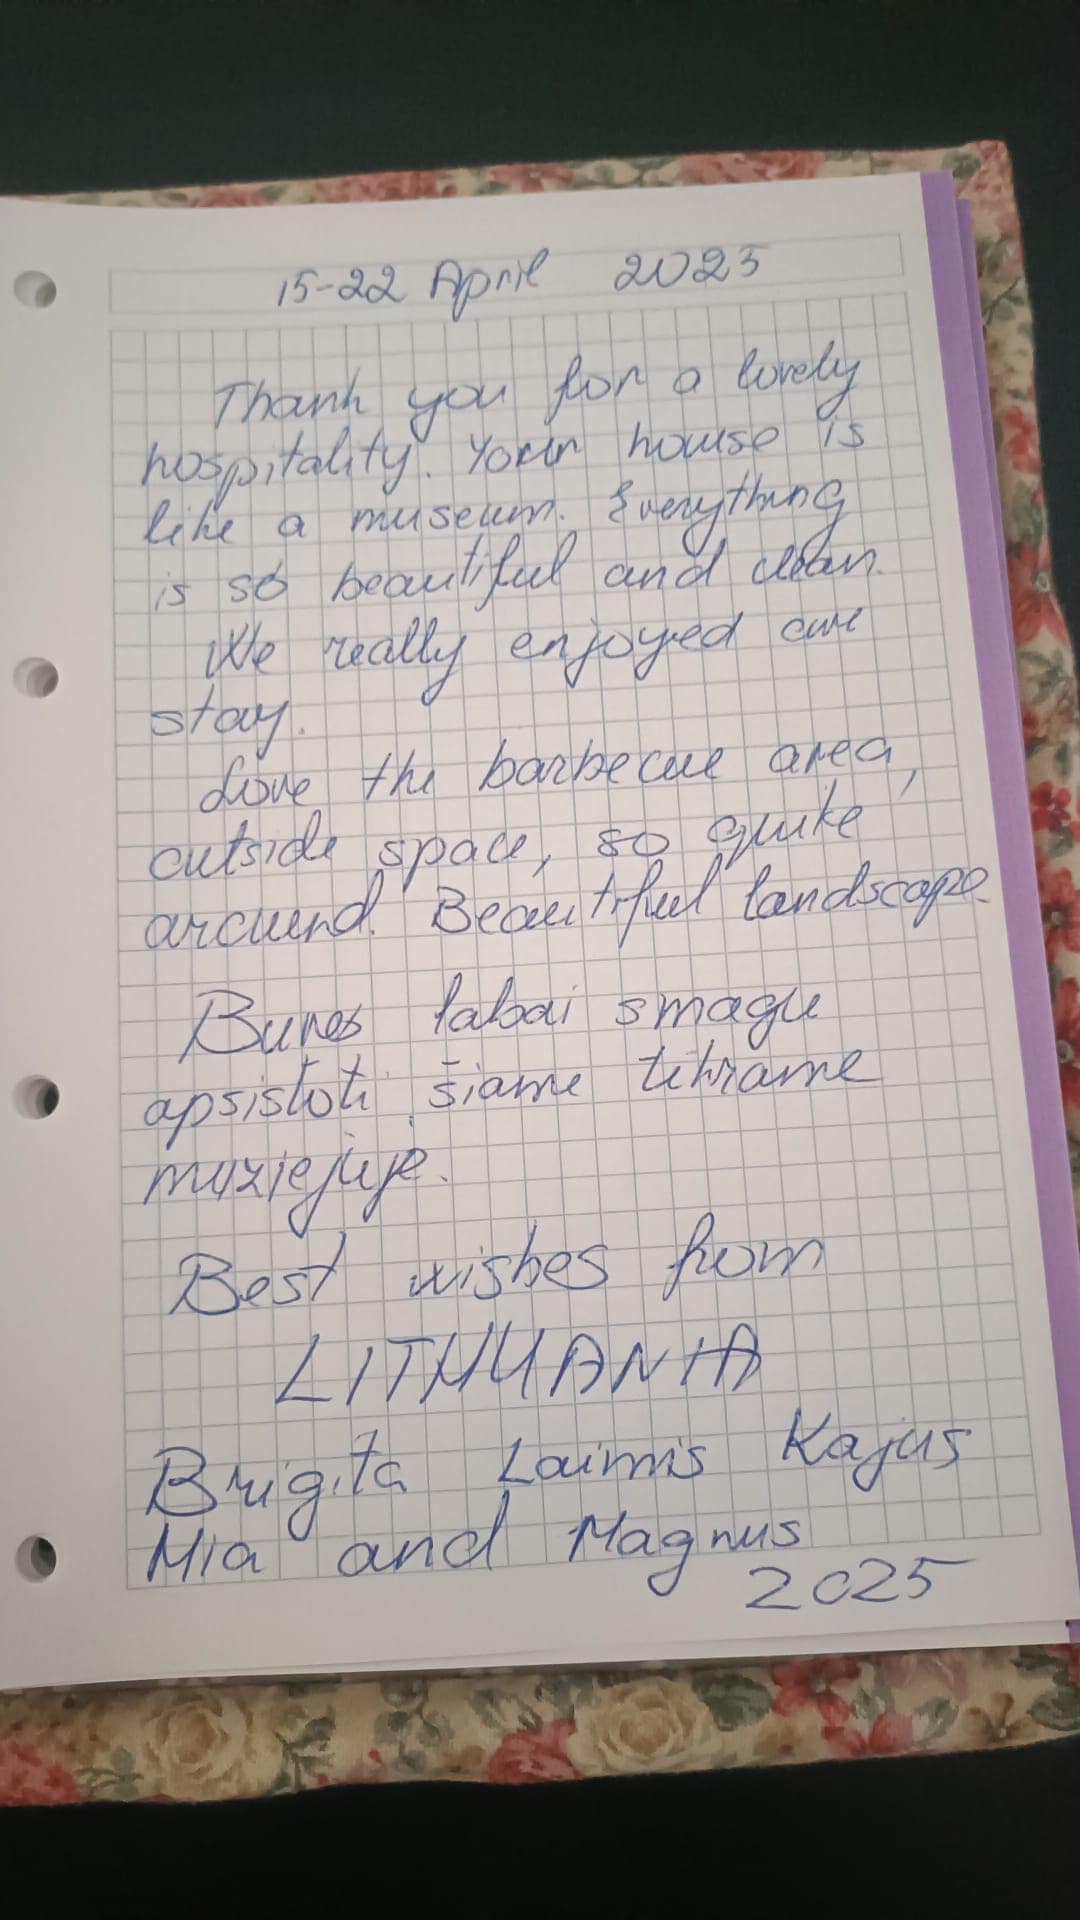 15-22 April 2025
Thank you for a lovely
hospitality. Your house is
like a museum. Everything
is so beautiful and clean.
We really enjoyed our
stay.
Love the barbecue area,
outside space, so quite
around. Beautiful landscape.
Buvo labai smagu
apsistoti šiame tikrame
muziejuje.
Best wishes from
LITHUANIA
Brigita Laimis Kajus
Mia and Magnus
2025